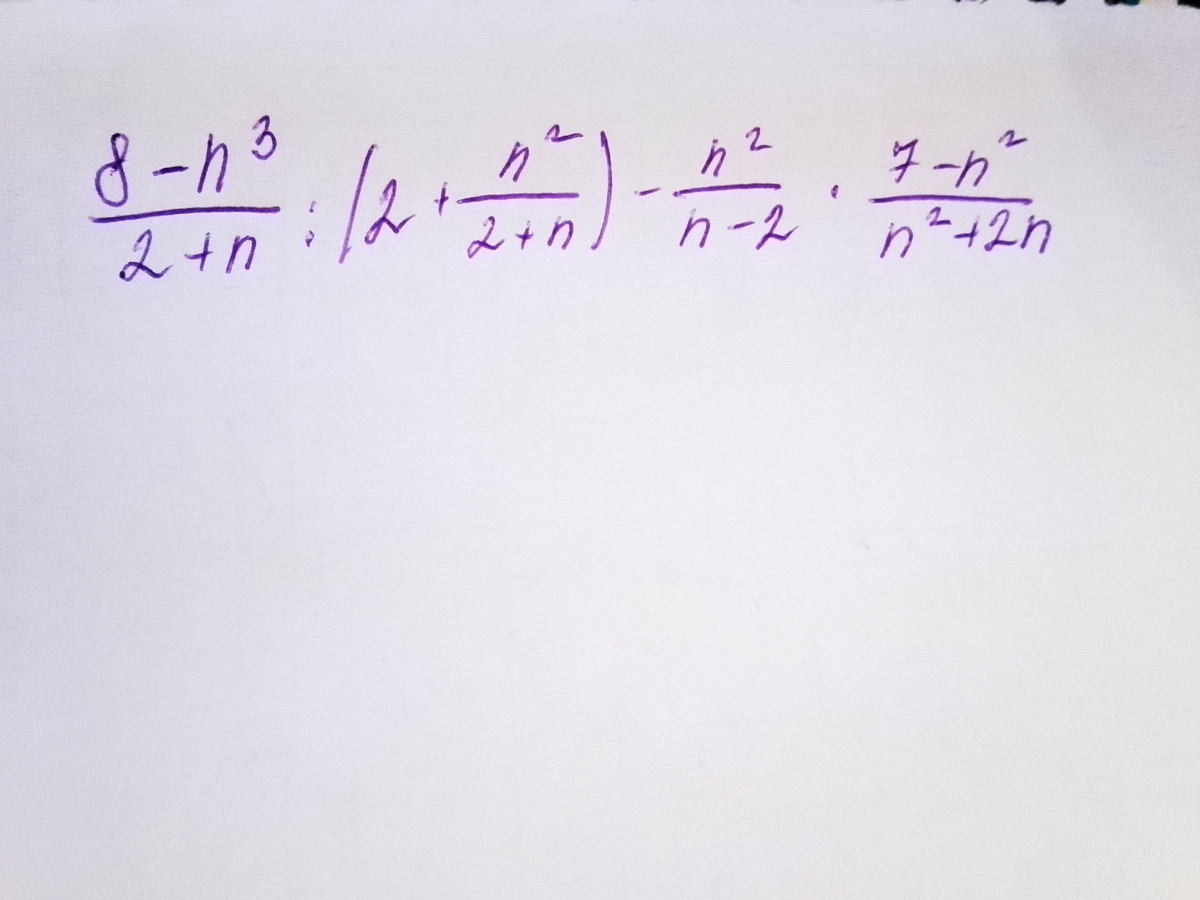 \frac{8-n^3}{2+n} : \left(2+\frac{n^2}{2+n}\right) - \frac{n^2}{n-2} \cdot \frac{7-n^2}{n^2+2n}